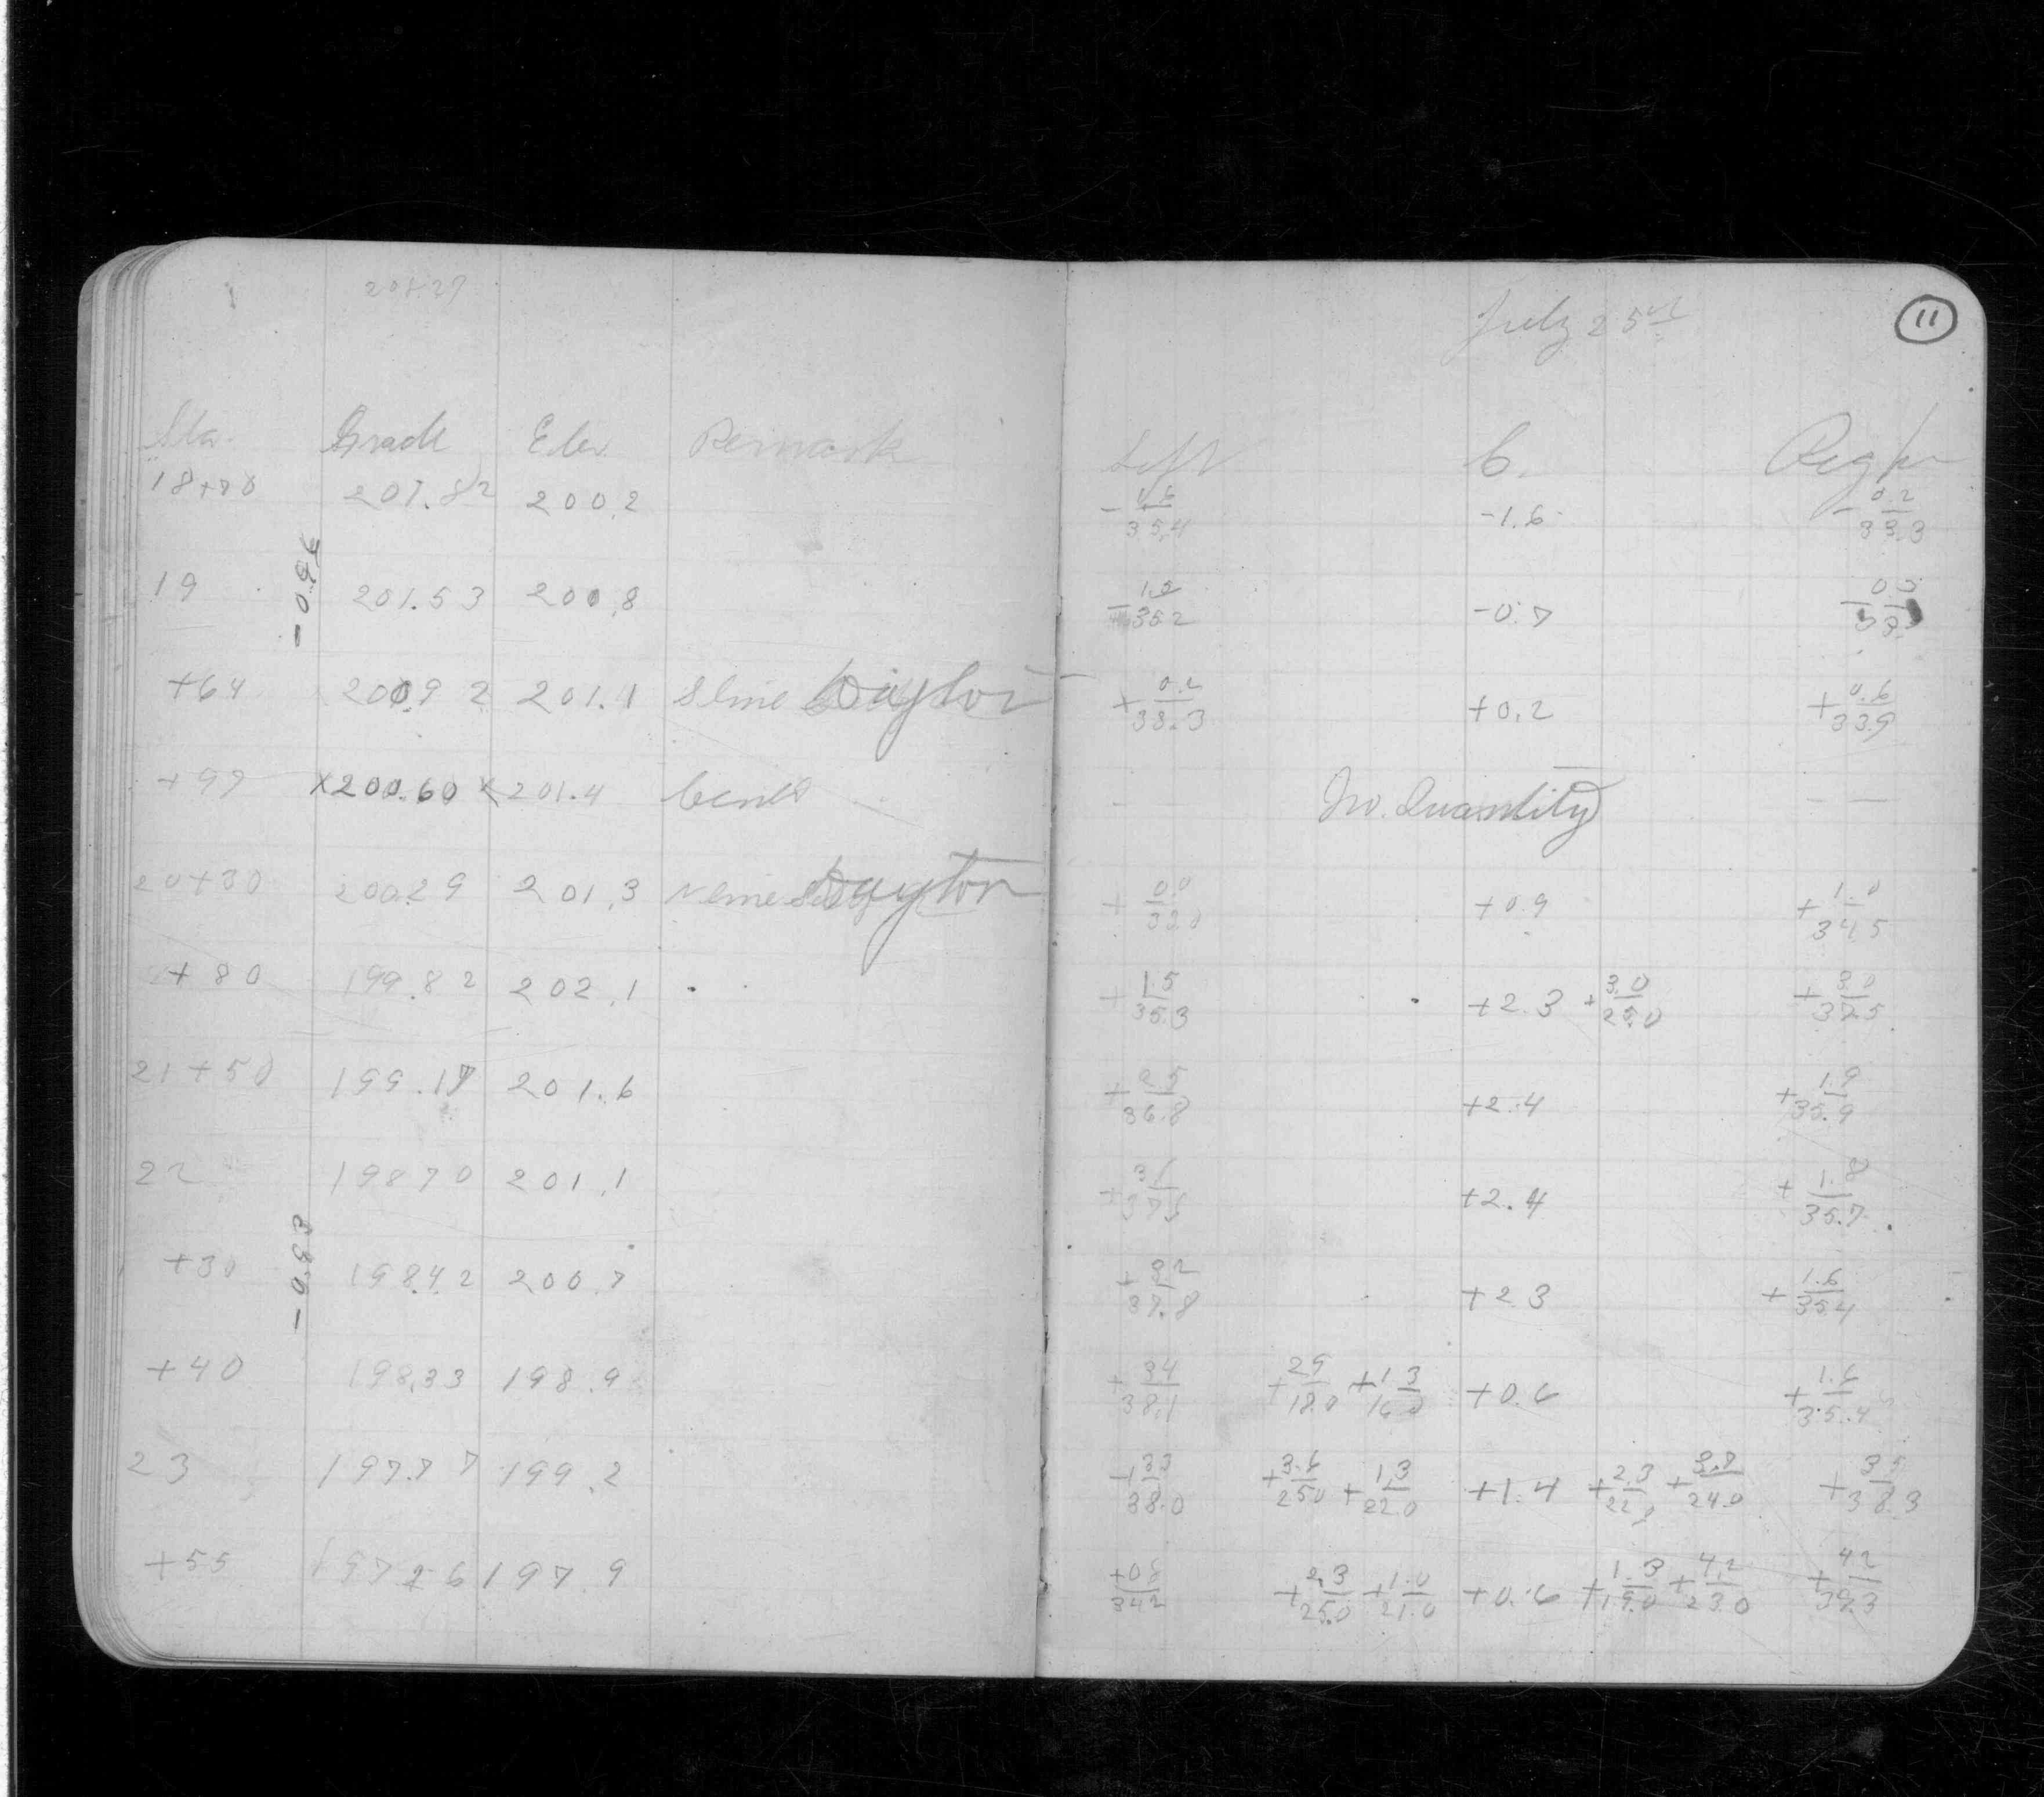 July 25th
11
Sta. Grade Elev. Remark Left C. Right
18+70 201.82 200.2 -1.6/35.4 -1.6 -0.2/33.3
-0.96
19 201.53 200.8 -1.2/35.2 -0.7
+64 200.92 201.1 S line Daylor +0.2/33.3 +0.2 +0.6/33.9
+97 x200.60 x201.4 Cent No. Quantity — —
20+30 200.29 201.3 N line Daylor +0.0/33.0 +0.9 +1.0/34.5
+80 199.82 202.1 +1.5/35.3 +2.3 +3.0/25.0 +3.0/37.5
21+50 199.17 201.6 +2.5/36.8 +2.4 +1.9/35.9
22 198.70 201.1 +2.4 +1.8/35.7
-0.93
+30 198.42 200.7 +3.2/37.8 +2.3 +1.6/35.4
+40 198.33 198.9 +3.4/38.1 +2.9/18.0 +1.3/16.0 +0.6 +1.6/35.4
23 197.77 199.2 +3.3/38.0 +3.6/25.0 +1.3/22.0 +1.4 +2.3/22.0 +3.7/24.0 +3.5/38.3
+55 197.26 197.9 +0.8/34.2 +2.3/25.0 +1.0/21.0 +0.6 +1.3/19.0 +4.2/23.0 +4.2/39.3